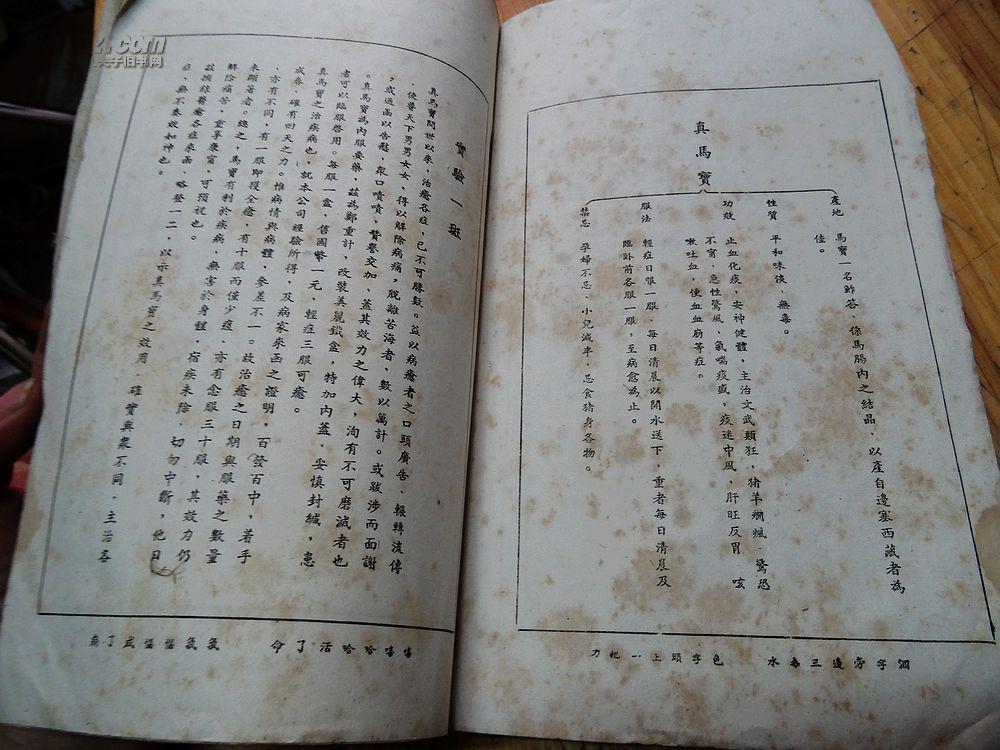 真馬寶
產地　馬寶一名鮓答、係馬腸內之結晶、以產自邊塞西藏者為
佳。
性質　平和味淡、無毒。
功效　止血化痰，安神健體，主治文武顛狂，猪羊癇瘋、驚恐
不甯，急性驚風、氣喘痰盛，痰迷中風，肝旺反胃、咳
嗽吐血，便血血崩等症。
服法　輕症日服一服，每日清晨以開水送下，重者每日清晨及
臨卧前各服一服，至病愈為止。
禁忌　孕婦不忌、小兒減半、忌食猪身各物。
酒字旁邊三點水　色字頭上一把刀
實驗一斑
真馬寶問世以來、治癒各症，已不可勝數。益以病癒者之口頭廣告、輾轉流傳
、使普天下男男女女，得以解除病痛，脫離苦海者，數以萬計。或跋涉而面謝
，或通函以告愁，眾口嘖嘖，贊譽交加、蓋其效力之偉大，洵有不可磨滅者也
。真馬寶為內服要藥，茲為鄭重計，改裝美麗鐵盒，特加內蓋，妥慎封緘，患
者可以臨服啓用。每服一盒，售國幣一元，輕症三服可癒。
真馬寶之治疾病也，就本公司經驗所得，及病家來函之證明，百發百中，着手
成春，確有回天之力。惟病情與病體，參差不一。故治癒之日期與服藥之數量
、亦有不同，有一服即獲全癒，有十服而僅少痊、亦有念服三十服，其效力仍
未顯著者。總之，馬寶有利於疾病，無害於身體，宿疾未除、切勿中斷，他日
解除痛苦，重享康甯，可預祝也。
茲摘錄醫癒各症來函、略登一二，以示真馬寶之效用、確實與衆不同，主治各
症，無不奏效如神也。
嘻嘻哈哈活了命　氣氣惱惱